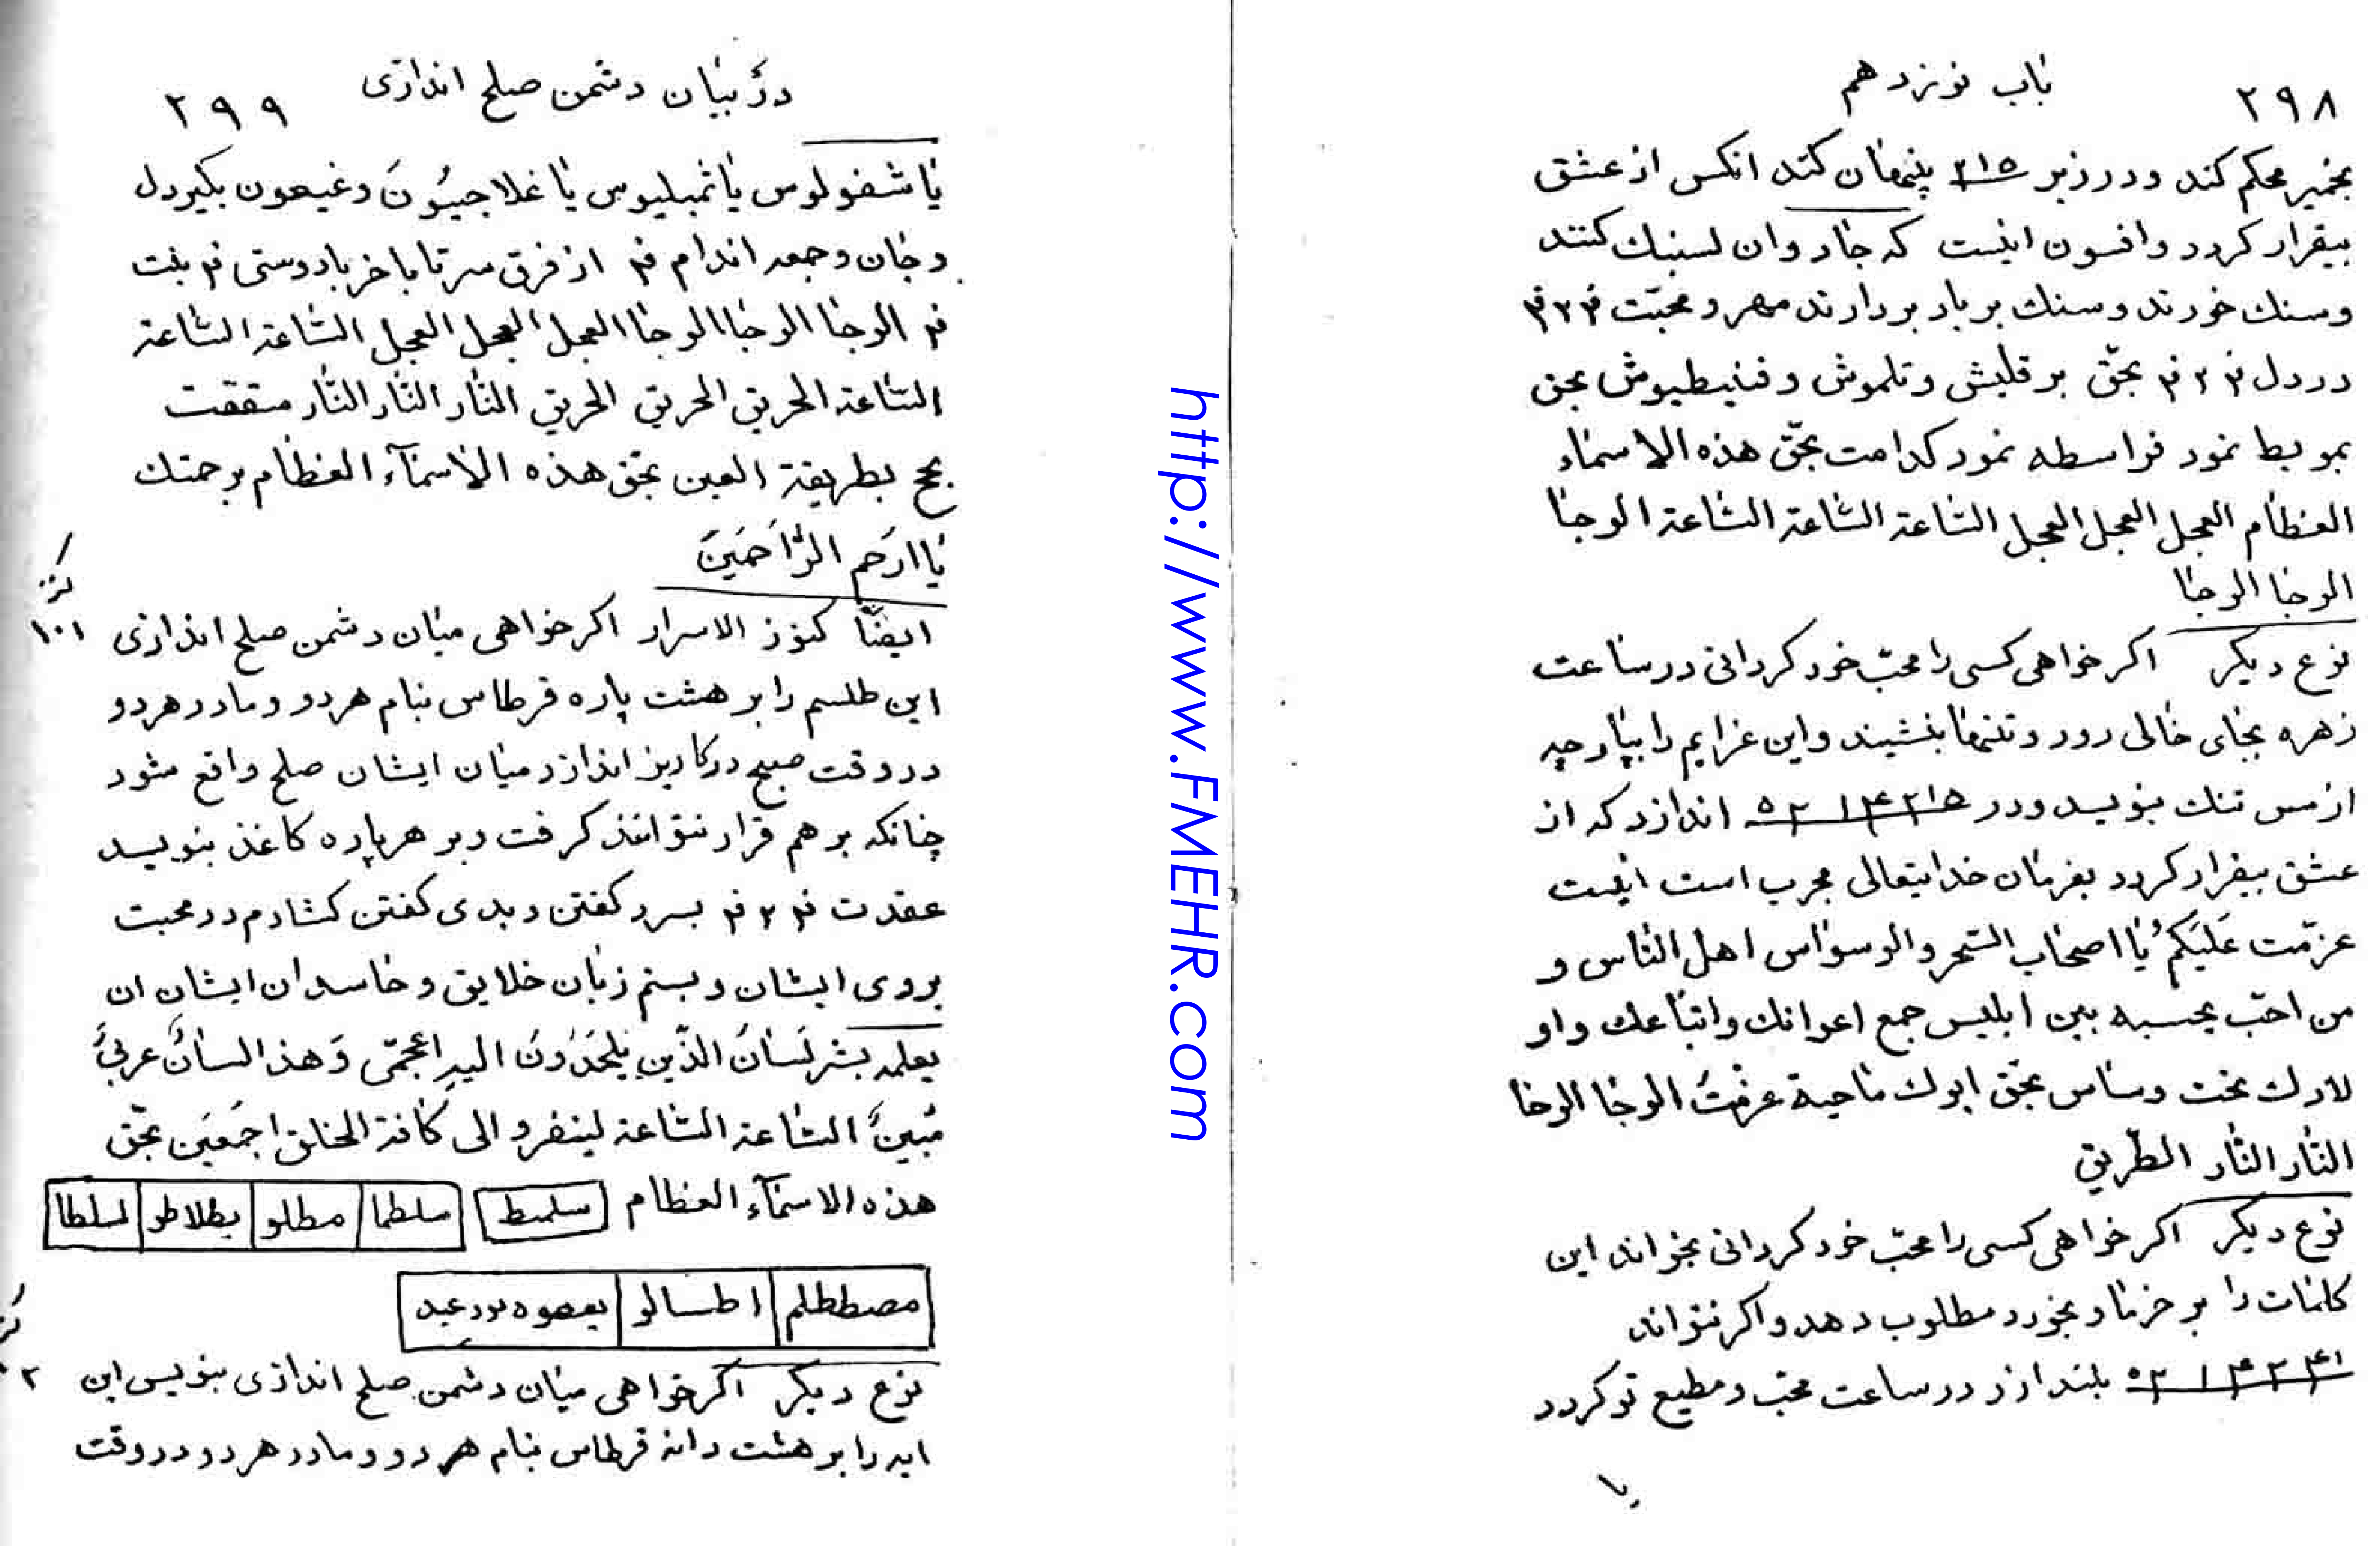 ۲۹۸
باب نوزدهم
بخمیر محکم کند و در زیر ۳۱۵ پنهان کند انکس از عشق
بیقرار کردد وافسون اینست که جادوان لسنبك کنند
وسنك خورند وسنك بر باد بردارند مهر و محبّت
در دل بحقّ برقلیش وتلموش و بحق
نمود فراسطه نمود بحقّ هذه الاسماء
العظام العجل العجل العجل السّاعة السّاعة السّاعة الوحا
الوحا الوحا
نوع دیکر اکر خواهی کسی را محبّ خود کردانی در ساعت
زهره بجای خالی رود و تنها بنشیند و این عزایم را بپارچه
از مس تنك بنویسد و در اندازد که از
عشق بیقرار کردد بفرمان خدایتعالی مجرب است اینست
عزمّت عَلَیکُم یا اصحاب السّحر والوسواس اهل النّاس و
من احبّ بین ابلیس جمع اعوانك واتباعك واو
لادك بحقّ ابوك عزمْتُ الوحا الوحا
النّار النّار الطّریق
نوع دیکر اکر خواهی کسی را محبّ خود کردانی بخواند این
کلمات را بر خرما و بخورد مطلوب دهد و اکر نتواند
بلندازد در ساعت محبّ و مطیع تو کردد
در بیان دشمن صلح اندازی
۲۹۹
یا شفولوس یا ثمبلیوس یا وغیعون بکیر دل
و جان و جمعه اندام از فرق سر تا باخر با دوستی بنت
الوحا الوحا الوحا العجل العجل العجل السّاعة السّاعة
السّاعة الحریق الحریق الحریق النّار النّار النّار
بطریقة العین بحق هذه الاسمآء العظام برحمتك
یا ارحَم الرّاحمَینَ
ایضاً کنوز الاسرار اکر خواهی میان دشمن صلح اندازی ۱۰۱
این طلسم را بر هشت پاره قرطاس بنام هردو و مادر هردو
در وقت صبح در کاریز اندازد میان ایشان صلح واقع شود
چنانکه بر هم قرار نتوانند کرفت و بر هر پاره کاغذ بنویسد
عقدت بسرد کفتن و بدی کفتن کشادم در محبت
بروی ایشان و بستم زبان خلایق و حاسدان ایشان ان
یعلمه بشر لَسانَ الذّین یلحدَونَ الیهِ اعجمّی وَهذا لسانُ عربیُّ
مُبینَُ السّاعة السّاعة لینفرو الی کافة الخلایق اجمَعَین بحّق
هذه الاسمآء العظام سلمط سلطما مطلو بطلاطو لسلطا
مصططلم اطسالو
نوع دیکر اکر خواهی میان دشمن صلح اندازی بنویس این
ایه را بر هشت دانه قرطاس بنام هردو و مادر هردو در وقت
http://www.FMEHR.com